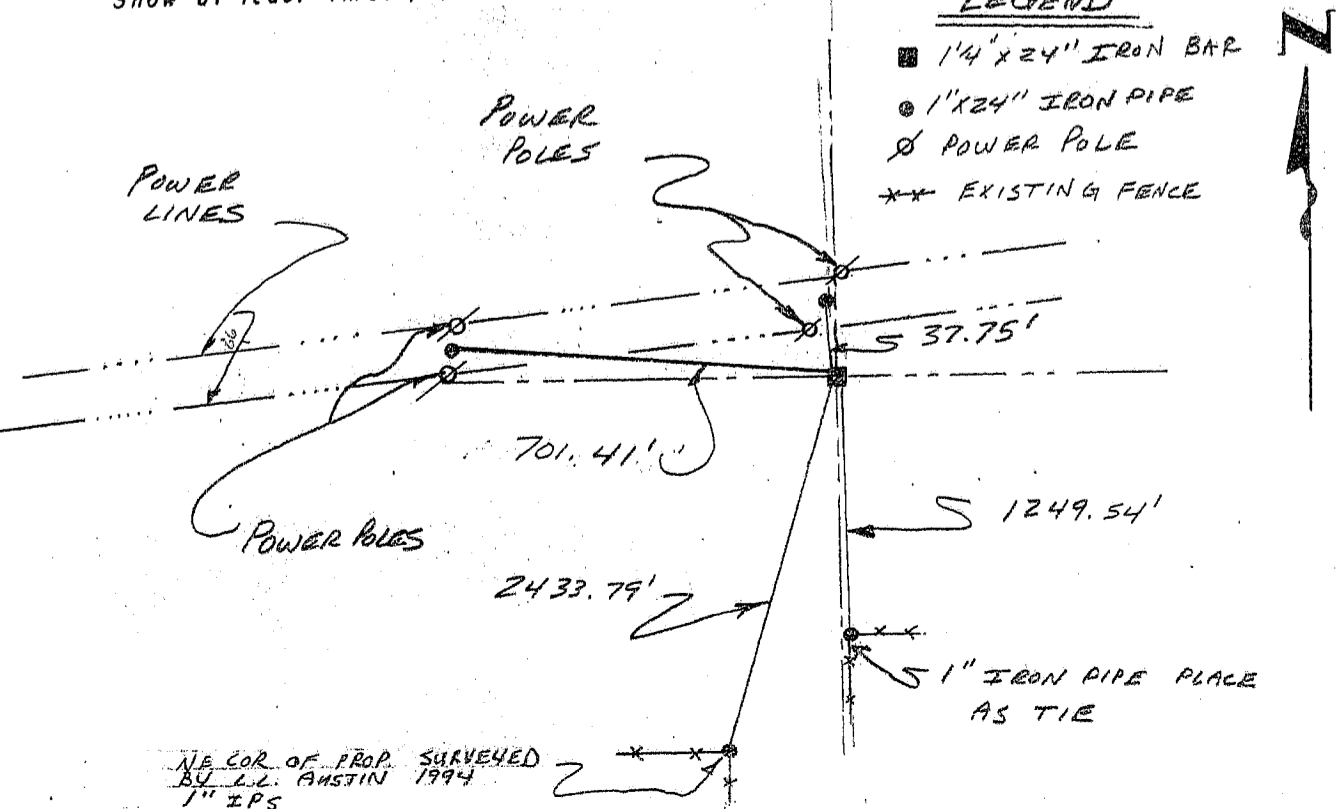 LEGEND
1'4"X24" IRON BAR
1"X24" IRON PIPE
POWER POLE
EXISTING FENCE
N
POWER
POLES
POWER
LINES
66'
37.75'
701.41'
POWER POLES
1249.54'
2433.79'
1" IRON PIPE PLACE
AS TIE
NE COR OF PROP. SURVEYED
BY L.L. AUSTIN 1994
1" IPS